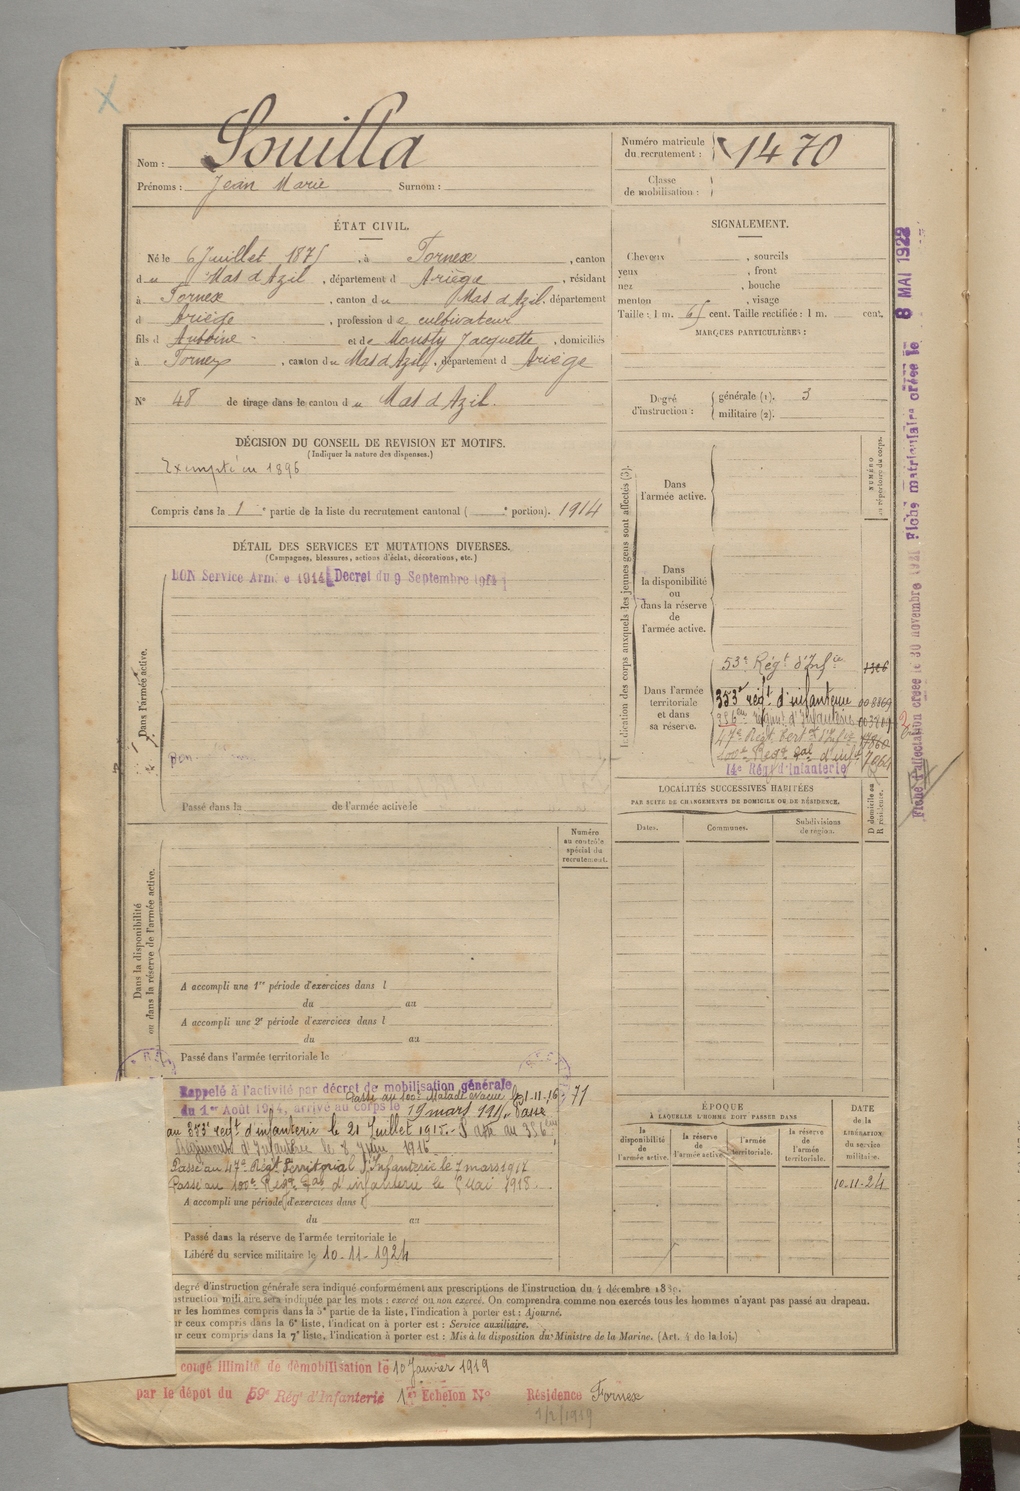 Nom : Souilla
Prénoms : Jean Marie Surnom :
Numéro matricule du recrutement : 1470
Classe de mobilisation :
ÉTAT CIVIL.
Né le 6 Juillet 1875, à Fornex, canton
du Mas d'Azil, département d Ariège, résidant
à Fornex, canton du Mas d'Azil, département
d Ariège, profession de cultivateur
fils d Antoine et de Mousty Jacquette, domiciliés
à Fornex, canton du Mas d'Azil, département d Ariège
N° 48 de tirage dans le canton du Mas d'Azil.
DÉCISION DU CONSEIL DE REVISION ET MOTIFS.
(Indiquer la nature des dispenses.)
Exempté en 1896
Compris dans la 1e partie de la liste du recrutement cantonal ( e portion). 1914
SIGNALEMENT.
Cheveux , sourcils
yeux , front
nez , bouche
menton , visage
Taille : 1 m. 65 cent. Taille rectifiée : 1 m. cent.
MARQUES PARTICULIÈRES :
Degré d'instruction : générale (1). 3
militaire (2).
DÉTAIL DES SERVICES ET MUTATIONS DIVERSES.
(Campagnes, blessures, actions d'éclat, décorations, etc.)
BON Service Armé 1914 Décret du 9 Septembre 1914
Dans l'armée active.
Passé dans la de l'armée active le
Indication des corps auxquels les jeunes gens sont affectés (3).
NUMÉRO au répertoire du corps.
Dans l'armée active.
Dans la disponibilité ou dans la réserve de l'armée active.
Dans l'armée territoriale et dans sa réserve.
53e Régt d'Infie
353e régt d'infanterie 008869
356eme régiment d'Infanterie
47e Régt Terr d'Infie
100e Régt d'inft
14e Régt d'Infanterie
LOCALITÉS SUCCESSIVES HABITÉES
PAR SUITE DE CHANGEMENTS DE DOMICILE OU DE RÉSIDENCE.
Dates. Communes. Subdivisions de région. D domicile ou R résidence.
Numéro au contrôle spécial du recrutement.
Dans la disponibilité ou dans la réserve de l'armée active.
A accompli une 1re période d'exercices dans l
du au
A accompli une 2e période d'exercices dans l
du au
Passé dans l'armée territoriale le
Rappelé à l'activité par décret de mobilisation générale
Passé au 100e Malade évacué le 1-11-16 71
du 1er Août 1914, arrivé au corps le 19 mars 1915. Passé
au 353e régt d'infanterie le 21 Juillet 1915. Passé au 356eme
Régiment d'Infanterie le 8 Juin 1916
Passé au 47e Régt Territorial d'Infanterie le 7 mars 1917
Passé au 100e Régt d'infanterie le Mai 1918.
A accompli une période d'exercices dans l
du au
Passé dans la réserve de l'armée territoriale le
Libéré du service militaire le 10-11-1924
ÉPOQUE
À LAQUELLE L'HOMME DOIT PASSER DANS
la disponibilité de l'armée active. la réserve de l'armée active. l'armée territoriale. la réserve de l'armée territoriale.
DATE de la LIBÉRATION du service militaire.
10-11-24
degré d'instruction générale sera indiqué conformément aux prescriptions de l'instruction du 4 décembre 1889.
nstruction militaire sera indiquée par les mots : exercé ou non exercé. On comprendra comme non exercés tous les hommes n'ayant pas passé au drapeau.
ur les hommes compris dans la 5e partie de la liste, l'indication à porter est : Ajourné.
ur ceux compris dans la 6e liste, l'indication à porter est : Service auxiliaire.
ur ceux compris dans la 7e liste, l'indication à porter est : Mis à la disposition du Ministre de la Marine. (Art. 4 de la loi.)
congé illimité de démobilisation le 10 Janvier 1919
par le dépot du 59e Rég d'Infanterie 1er Echelon N° Résidence Fornex
1/2/1919
Fiche d'affectation créée le 30 novembre 1921 Fiche matriculaire créée le 8 MAI 1922